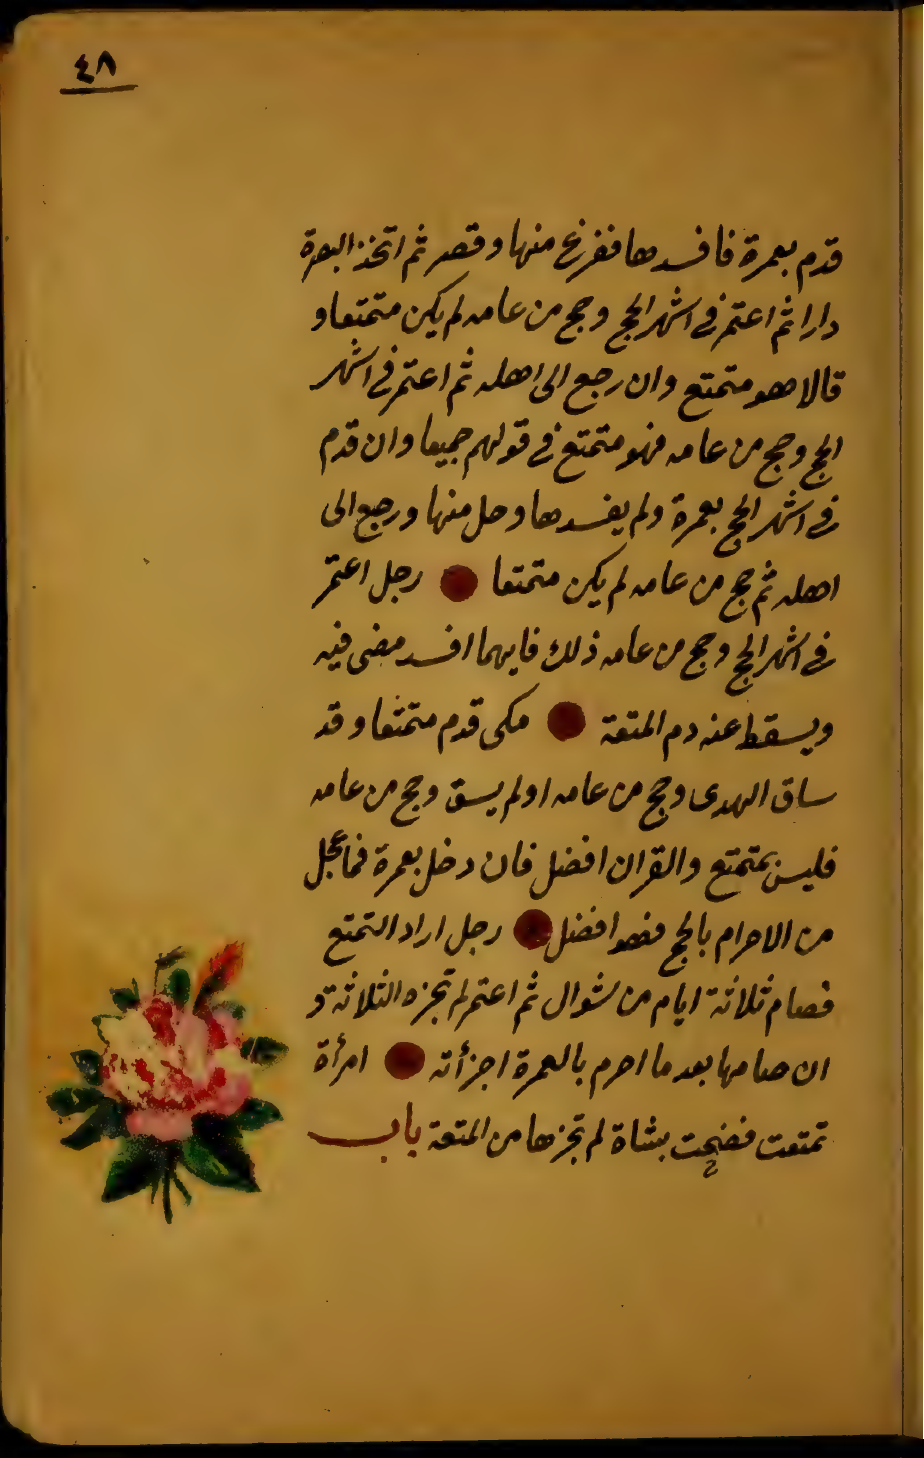 ٤٨
قدم بعمرة فافسدها ففرغ منها وقصر ثم اتخذ البصرة
دارا ثم اعتمر في اشهر الحج وحج من عامه لم يكن متمتعا و
قالا هو متمتع وان رجع الى اهله ثم اعتمر في اشهر
الحج وحج من عامه فهو متمتع في قولهم جميعا وان قدم
في اشهر الحج بعمرة ولم يفسدها وحل منها ورجع الى
اهله ثم حج من عامه لم يكن متمتعا رجل اعتمر
في اشهر الحج وحج من عامه ذلك فايهما افسد مضى فيه
ويسقط عنه دم المتعة مكى قدم متمتعا وقد
ساق الهدى وحج من عامه اولم يسق وحج من عامه
فليس بمتمتع والقران افضل فان دخل بعمرة فما عجل
من الاحرام بالحج فهو افضل رجل اراد التمتع
فصام ثلاثة ايام من شوال ثم اعتمر لم تجزه الثلاثة و
ان صامها بعد ما احرم بالعمرة اجزأته امرأة
تمتعت فضحت بشاة لم تجزها من المتعة باب